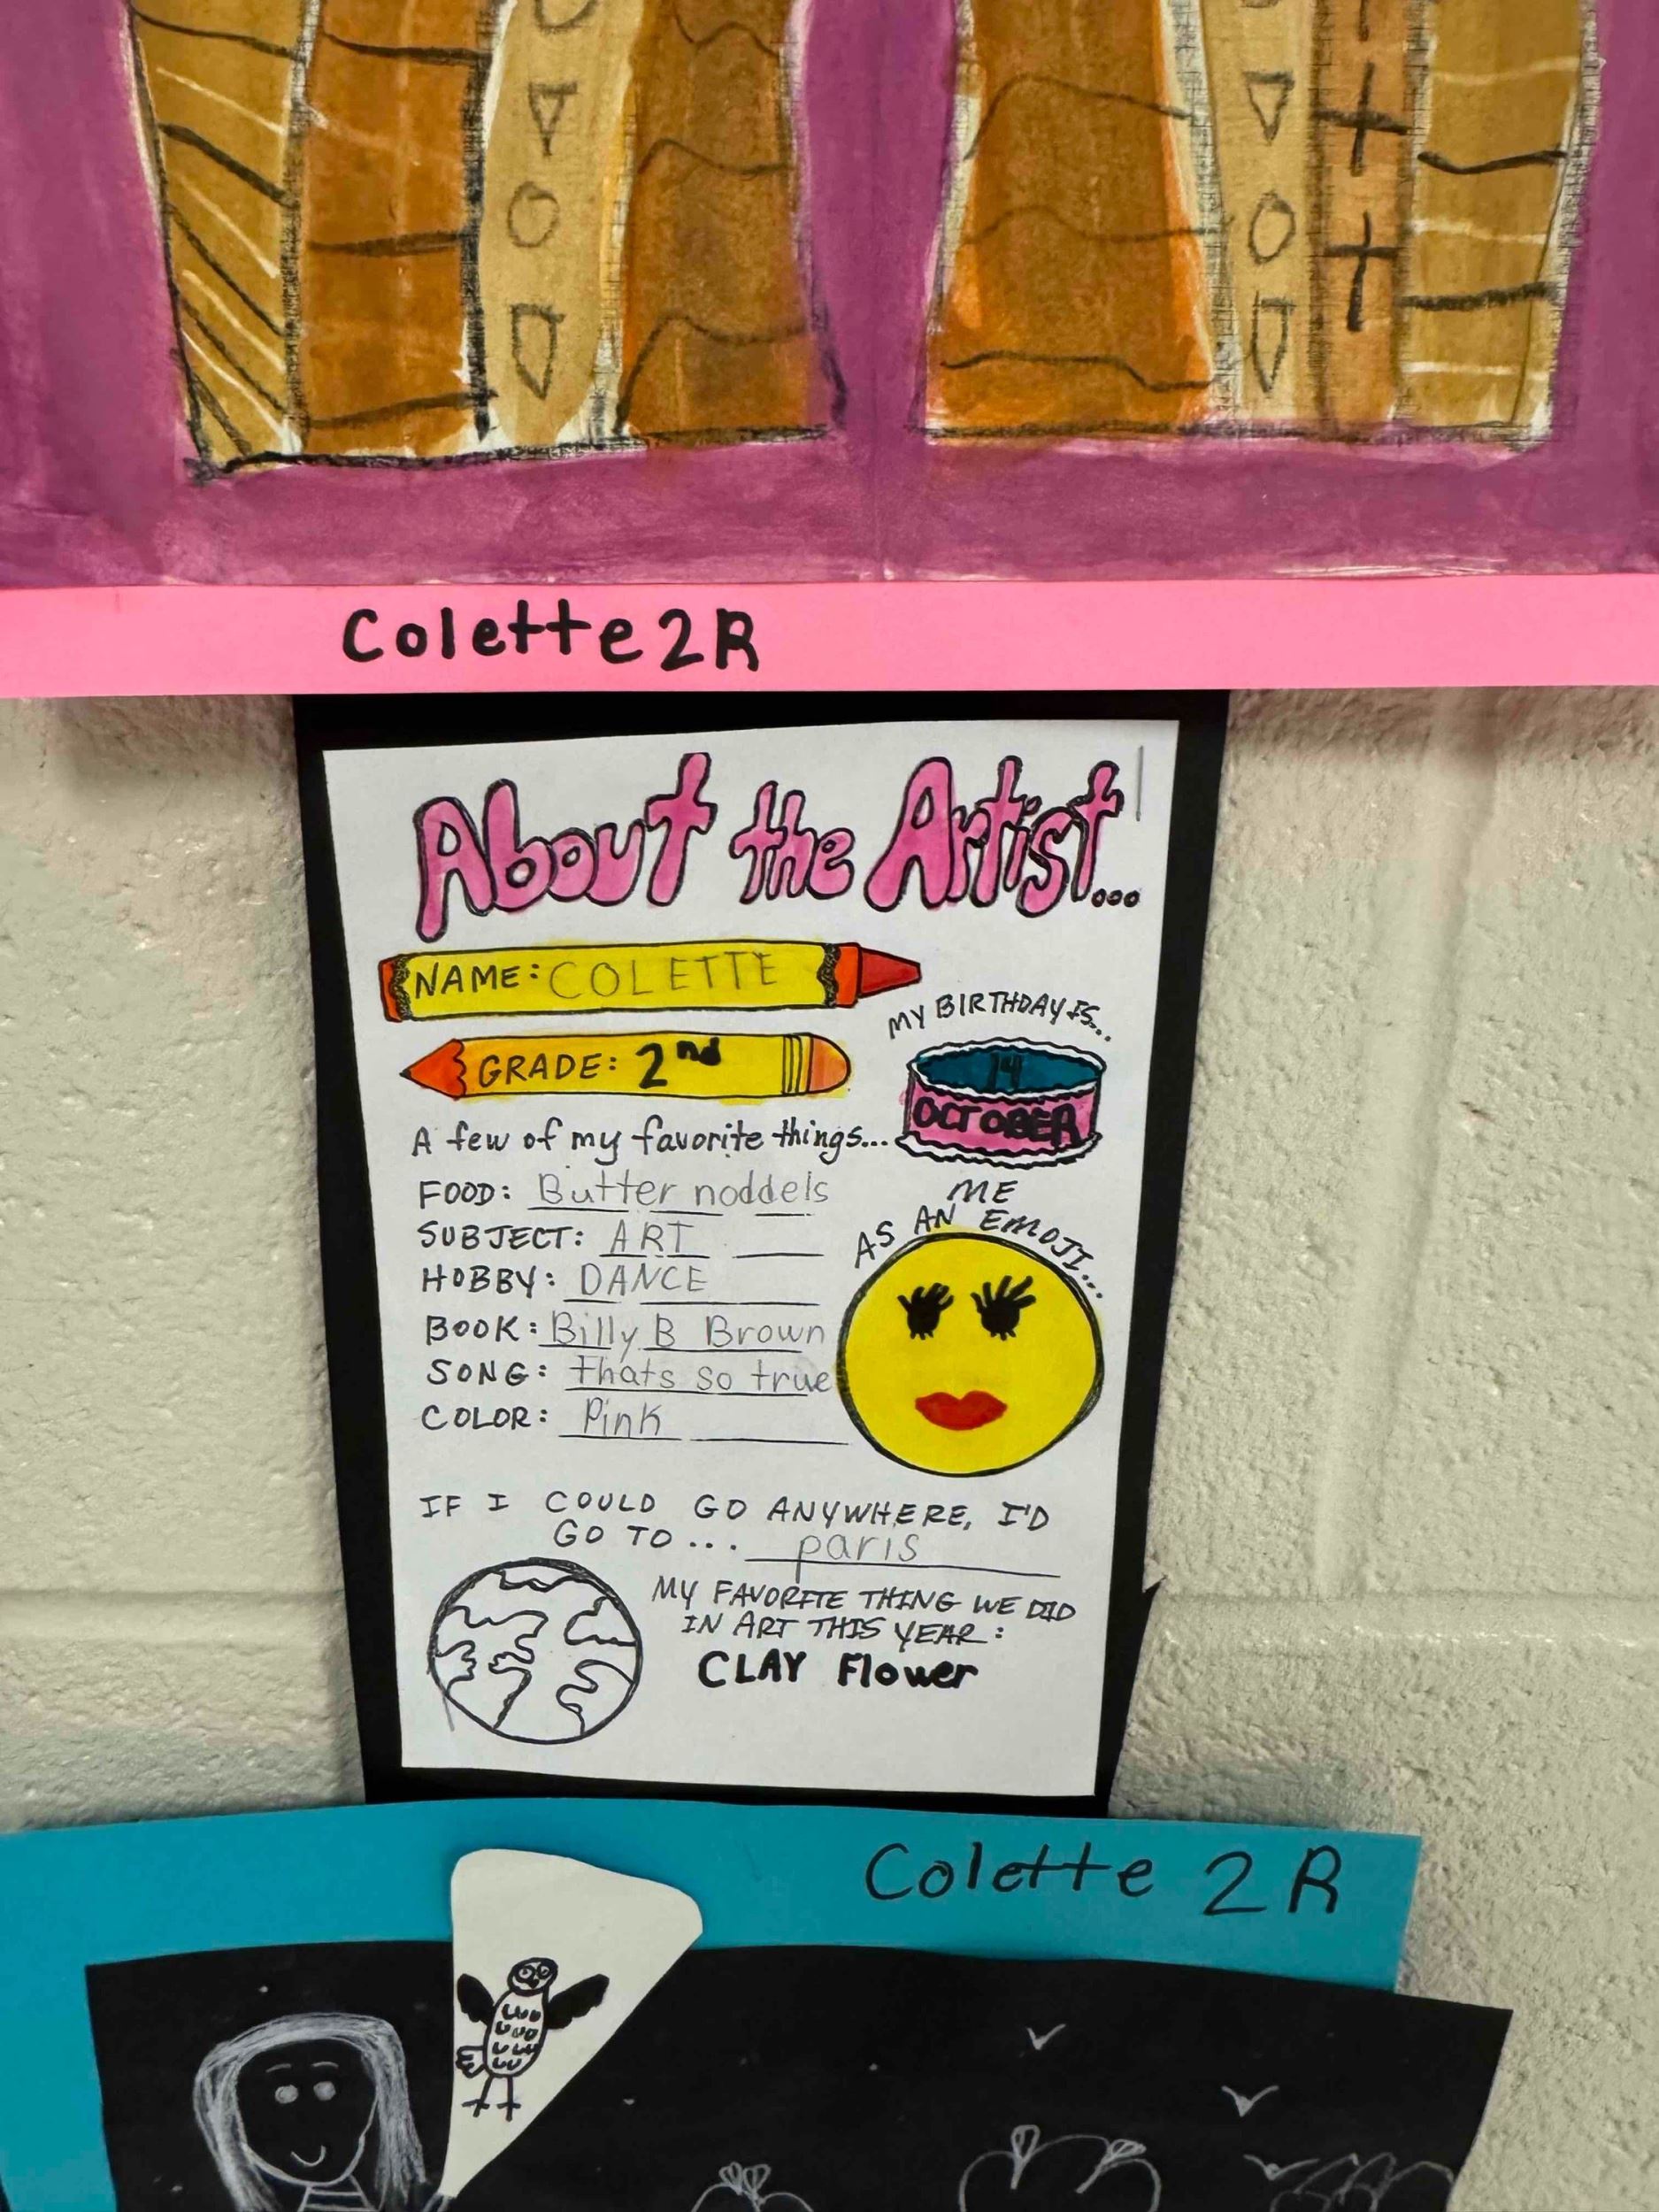 Colette 2R
About the Artist...
NAME: COLETTE
MY BIRTHDAY IS...
14
OCTOBER
GRADE: 2nd
A few of my favorite things...
FOOD: Butter noddels
SUBJECT: ART
HOBBY: DANCE
BOOK: Billy B Brown
SONG: thats so true
COLOR: Pink
ME
AS AN EMOJI...
IF I COULD GO ANYWHERE, I'D
GO TO... paris
MY FAVORITE THING WE DID
IN ART THIS YEAR:
CLAY Flower
Colette 2R